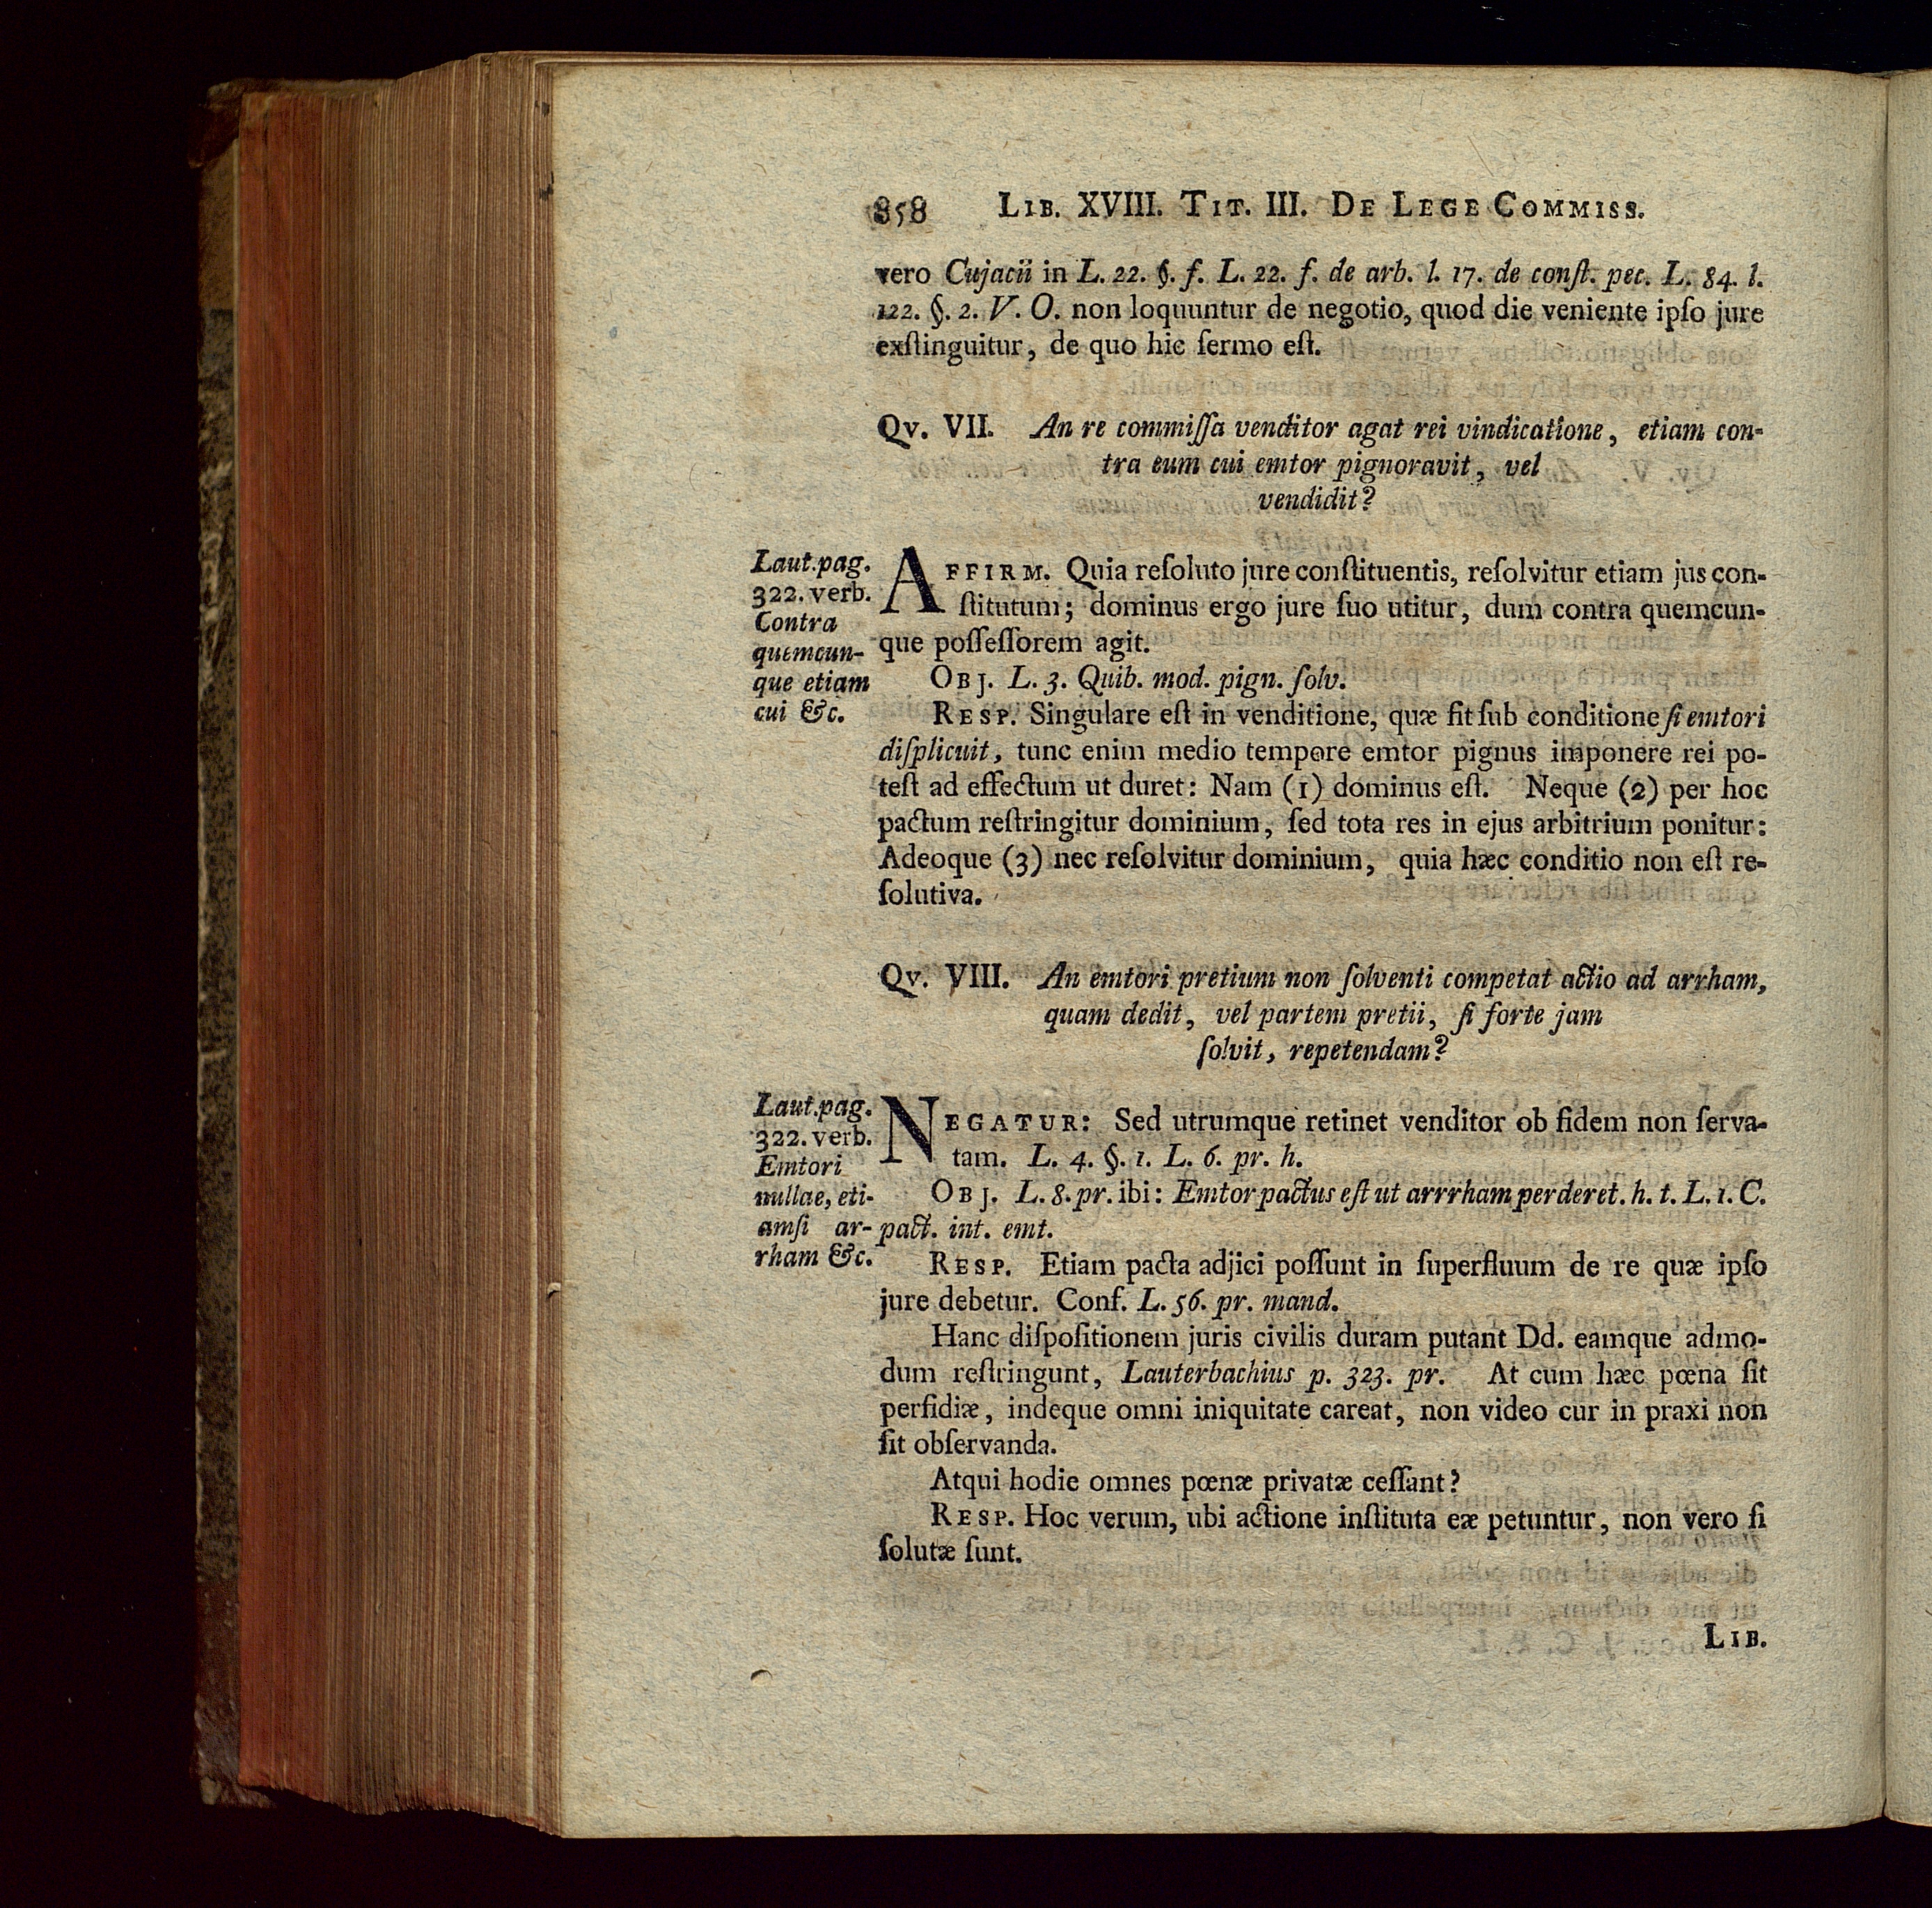 858 LIB. XVIII. TIT. III. DE LEGE COMMISS.
vero Cujacii in L. 22. §. f. L. 22. f. de arb. l. 17. de conſt. pec. L. 84. l.
122. §. 2. V. O. non loquuntur de negotio, quod die veniente ipſo jure
exſtinguitur, de quo hic ſermo eſt.
Qv. VII. An re commiſſa venditor agat rei vindicatione, etiam con-
tra eum cui emtor pignoravit, vel
vendidit?
Laut. pag.
322. verb.
Contra
quemcun-
que etiam
cui &c.
AFFIRM. Quia reſoluto jure conſtituentis, reſolvitur etiam jus con-
ſtitutum; dominus ergo jure ſuo utitur, dum contra quemcun-
que poſſeſſorem agit.
OBJ. L. 3. Quib. mod. pign. ſolv.
RESP. Singulare eſt in venditione, quæ fit ſub conditione ſi emtori
diſplicuit, tunc enim medio tempore emtor pignus imponere rei po-
teſt ad effectum ut duret: Nam (1) dominus eſt. Neque (2) per hoc
pactum reſtringitur dominium, ſed tota res in ejus arbitrium ponitur:
Adeoque (3) nec reſolvitur dominium, quia hæc conditio non eſt re-
ſolutiva.
Qv. VIII. An emtori pretium non ſolventi competat actio ad arrham,
quam dedit, vel partem pretii, ſi forte jam
ſolvit, repetendam?
Laut. pag.
322. verb.
Emtori
nullae, eti-
amſi ar-
rham &c.
NEGATUR: Sed utrumque retinet venditor ob fidem non ſerva-
tam. L. 4. §. 1. L. 6. pr. h.
OBJ. L. 8. pr. ibi: Emtor pactus eſt ut arrrham perderet. h. t. L. 1. C.
pact. int. emt.
RESP. Etiam pacta adjici poſſunt in ſuperfluum de re quæ ipſo
jure debetur. Conf. L. 56. pr. mand.
Hanc diſpoſitionem juris civilis duram putant Dd. eamque admo-
dum reſtringunt, Lauterbachius p. 323. pr. At cum hæc pœna ſit
perfidiæ, indeque omni iniquitate careat, non video cur in praxi non
ſit obſervanda.
Atqui hodie omnes pœnæ privatæ ceſſant?
RESP. Hoc verum, ubi actione inſtituta eæ petuntur, non vero ſi
ſolutæ ſunt.
LIB.